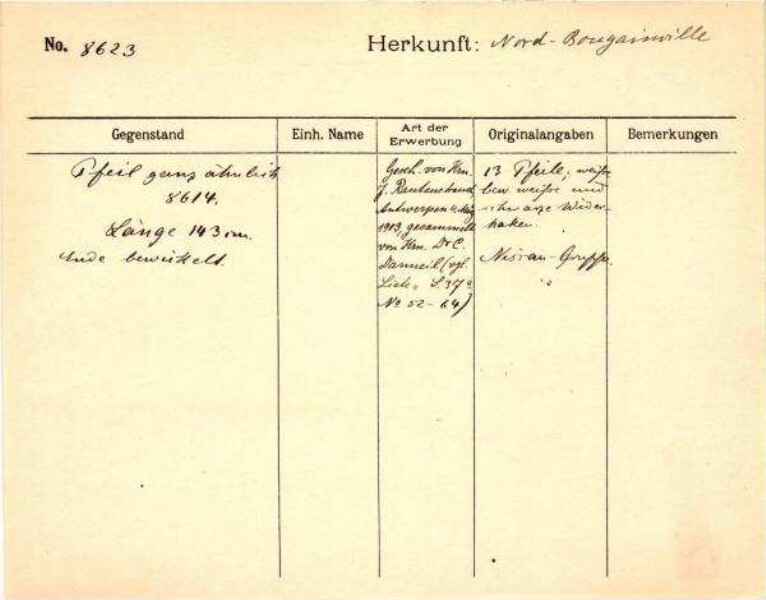 No. 8623
Herkunft: Nord-Bougainville
Gegenstand
Einh. Name
Art der Erwerbung
Originalangaben
Bemerkungen
Pfeil ganz ähnlich
8614.
Länge 143 cm.
Ende bewickelt.
Gesch. von Hrn.
J. Rautenstrauch
Antwerpen
1903, gesammelt
von Hrn. Dr C.
Danneil (vgl.
Liste S. 37
No 52-64)
13 Pfeile; weiße
und
schwarze Wider-
haken.
Nissan-Gruppe.